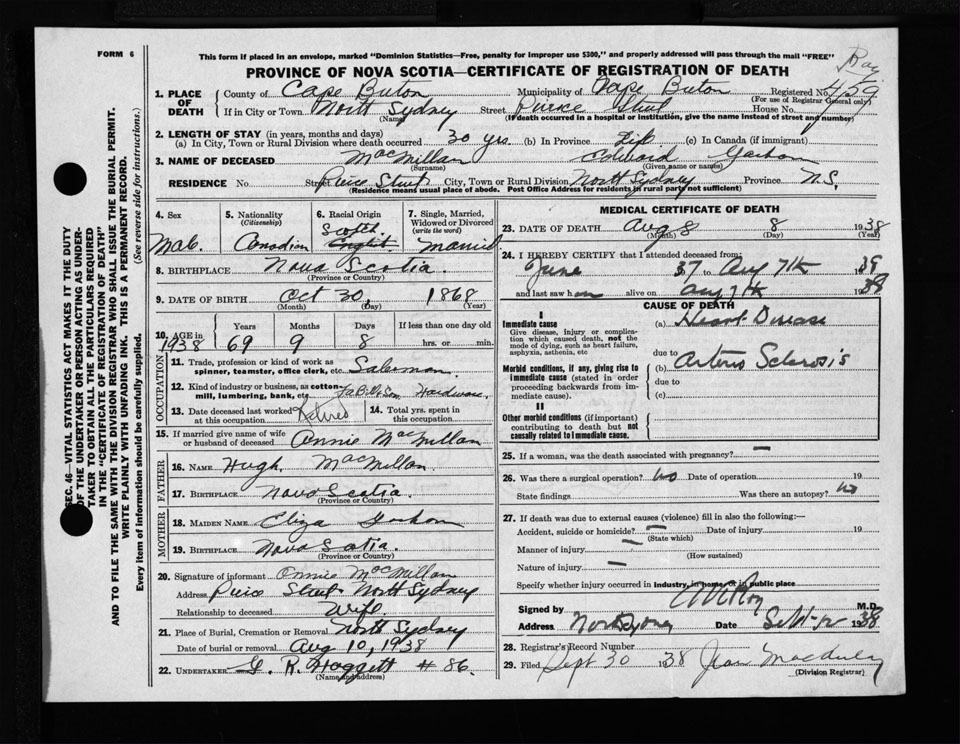 FORM 6
This form if placed in an envelope, marked "Dominion Statistics—Free, penalty for improper use $300," and properly addressed will pass through the mail "FREE"
PROVINCE OF NOVA SCOTIA—CERTIFICATE OF REGISTRATION OF DEATH
1. PLACE OF DEATH County of Cape Breton Municipality of Cape Breton Registered No. 459
(For use of Registrar General only)
If in City or Town North Sydney Street Pierce Street House No.
(Name) (If death occurred in a hospital or institution, give the name instead of street and number)
2. LENGTH OF STAY (in years, months and days)
(a) In City, Town or Rural Division where death occurred 30 yrs. (b) In Province Life (c) In Canada (if immigrant)
3. NAME OF DECEASED MacMillan Edward Graham
(Surname) (Given name or names)
RESIDENCE No Street Pierce Street City, Town or Rural Division North Sydney Province N.S.
(Residence means usual place of abode. Post Office Address for residents in rural parts not sufficient)
4. Sex 5. Nationality 6. Racial Origin 7. Single, Married, Widowed or Divorced
(Citizenship) (write the word)
Male Canadian Scotch English Married
8. BIRTHPLACE Nova Scotia.
(Province or Country)
9. DATE OF BIRTH Oct 30, 1868
(Month) (Day) (Year)
10. AGE in Years Months Days If less than one day old
1938 69 9 8 hrs. or min.
OCCUPATION
11. Trade, profession or kind of work as spinner, teamster, office clerk, etc. Salesman.
12. Kind of industry or business, as cotton-mill, lumbering, bank, etc. Hardware.
13. Date deceased last worked at this occupation Retired 14. Total yrs. spent in this occupation
15. If married give name of wife or husband of deceased Annie MacMillan
FATHER
16. NAME Hugh MacMillan
17. BIRTHPLACE Nova Scotia.
(Province or Country)
MOTHER
18. MAIDEN NAME Eliza Graham
19. BIRTHPLACE Nova Scotia.
(Province or Country)
20. Signature of informant Annie MacMillan
Address Pierce Street North Sydney
Relationship to deceased Wife
21. Place of Burial, Cremation or Removal North Sydney
Date of burial or removal Aug 10, 1938
22. UNDERTAKER G. R. Hoggett # 86.
(Name and address)
MEDICAL CERTIFICATE OF DEATH
23. DATE OF DEATH Aug 8 8 1938
(Month) (Day)
24. I HEREBY CERTIFY that I attended deceased from:
June 37 to Aug 7th 1939
and last saw him alive on Aug 7th 1938
CAUSE OF DEATH
I
Immediate cause
Give disease, injury or complication which caused death, not the mode of dying, such as heart failure, asphyxia, asthenia, etc
(a) Heart Disease
due to
Morbid conditions, if any, giving rise to immediate cause (stated in order proceeding backwards from immediate cause).
(b) Arterio Sclerosis
due to
(c)
II
Other morbid conditions (if important) contributing to death but not causally related to immediate cause.
25. If a woman, was the death associated with pregnancy?
26. Was there a surgical operation? No Date of operation 19
State findings Was there an autopsy? No
27. If death was due to external causes (violence) fill in also the following:—
Accident, suicide or homicide? Date of injury 19
(State which)
Manner of injury
(How sustained)
Nature of injury
Specify whether injury occurred in industry, in home or in public place
Signed by M.D.
Address North Sydney Date 1938
28. Registrar's Record Number
29. Filed Sept 30 1938 Jean
(Division Registrar)
SEC. 46—VITAL STATISTICS ACT MAKES IT THE DUTY
OF THE UNDERTAKER OR PERSON ACTING AS UNDERTAKER TO OBTAIN ALL THE PARTICULARS REQUIRED
IN THE "CERTIFICATE OF REGISTRATION OF DEATH"
AND TO FILE THE SAME WITH THE DIVISION REGISTRAR WHO SHALL ISSUE THE BURIAL PERMIT.
WRITE PLAINLY WITH UNFADING INK. THIS IS A PERMANENT RECORD.
Every item of information should be carefully supplied. (See reverse side for instructions.)